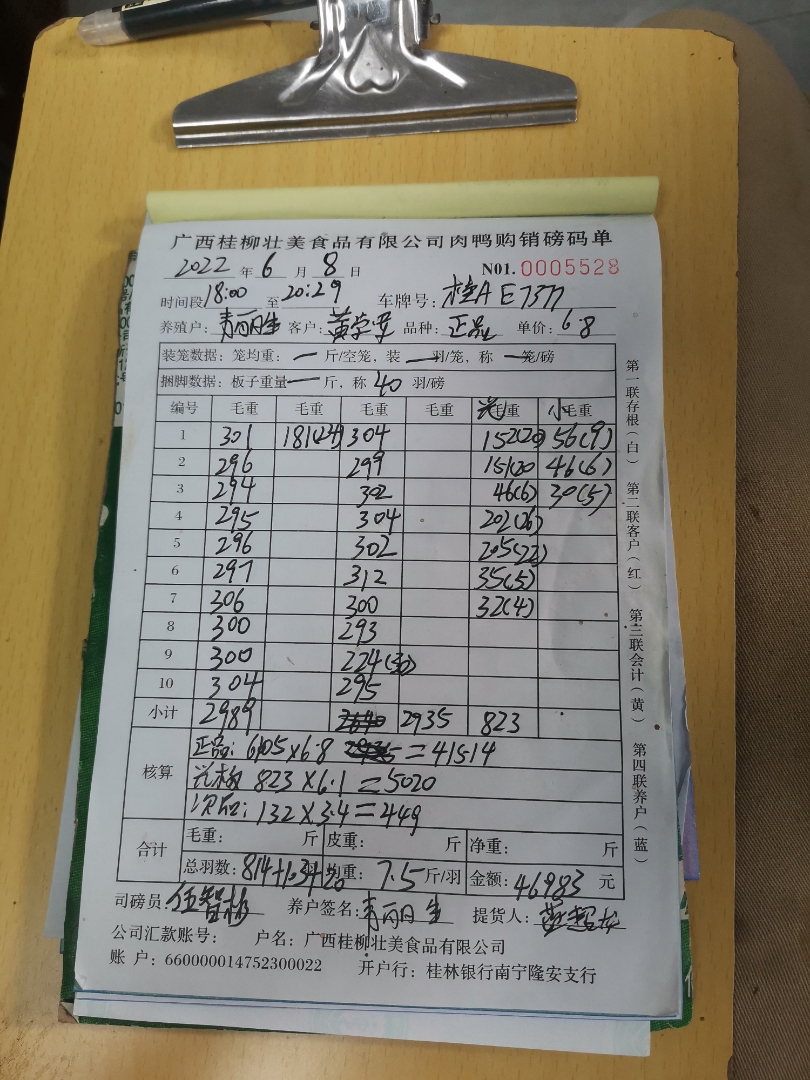 广西桂柳壮美食品有限公司肉鸭购销磅码单
2022 年 6 月 8 日 N01. 0005528
时间段 18:00 至 20:29 车牌号: 桂A E7377
养殖户: 青丽生 客户: 黄 品种: 正品 单价: 6.8
装笼数据: 笼均重: 一 斤/空笼, 装 一 羽/笼, 称 一 笼/磅
捆脚数据: 板子重量 一 斤, 称 40 羽/磅
编号 毛重 毛重 毛重 毛重 毛重 小 毛重
1 301 181(24) 304 152(20) 56(9)
2 296 299 151(20 46(6)
3 294 302 46(6) 30(5)
4 295 304 202(26)
5 296 302 205(27)
6 297 312 35(5)
7 306 300 32(4)
8 300 293
9 300 224(30)
10 304 295
小计 2989 2640 2935 823
核算
正品: 6105×6.8 =41514
823×6.1=5020
次品: 132×3.4=449
合计
毛重: 斤 皮重: 斤 净重: 斤
总羽数: 814+134+20 均重: 7.5 斤/羽 金额: 46983 元
司磅员: 伍智 养户签名: 青丽生 提货人: 黄超
公司汇款账号: 户名: 广西桂柳壮美食品有限公司
账 户: 660000014752300022 开户行: 桂林银行南宁隆安支行
第一联存根(白) 第二联客户(红) 第三联会计(黄) 第四联养户(蓝)